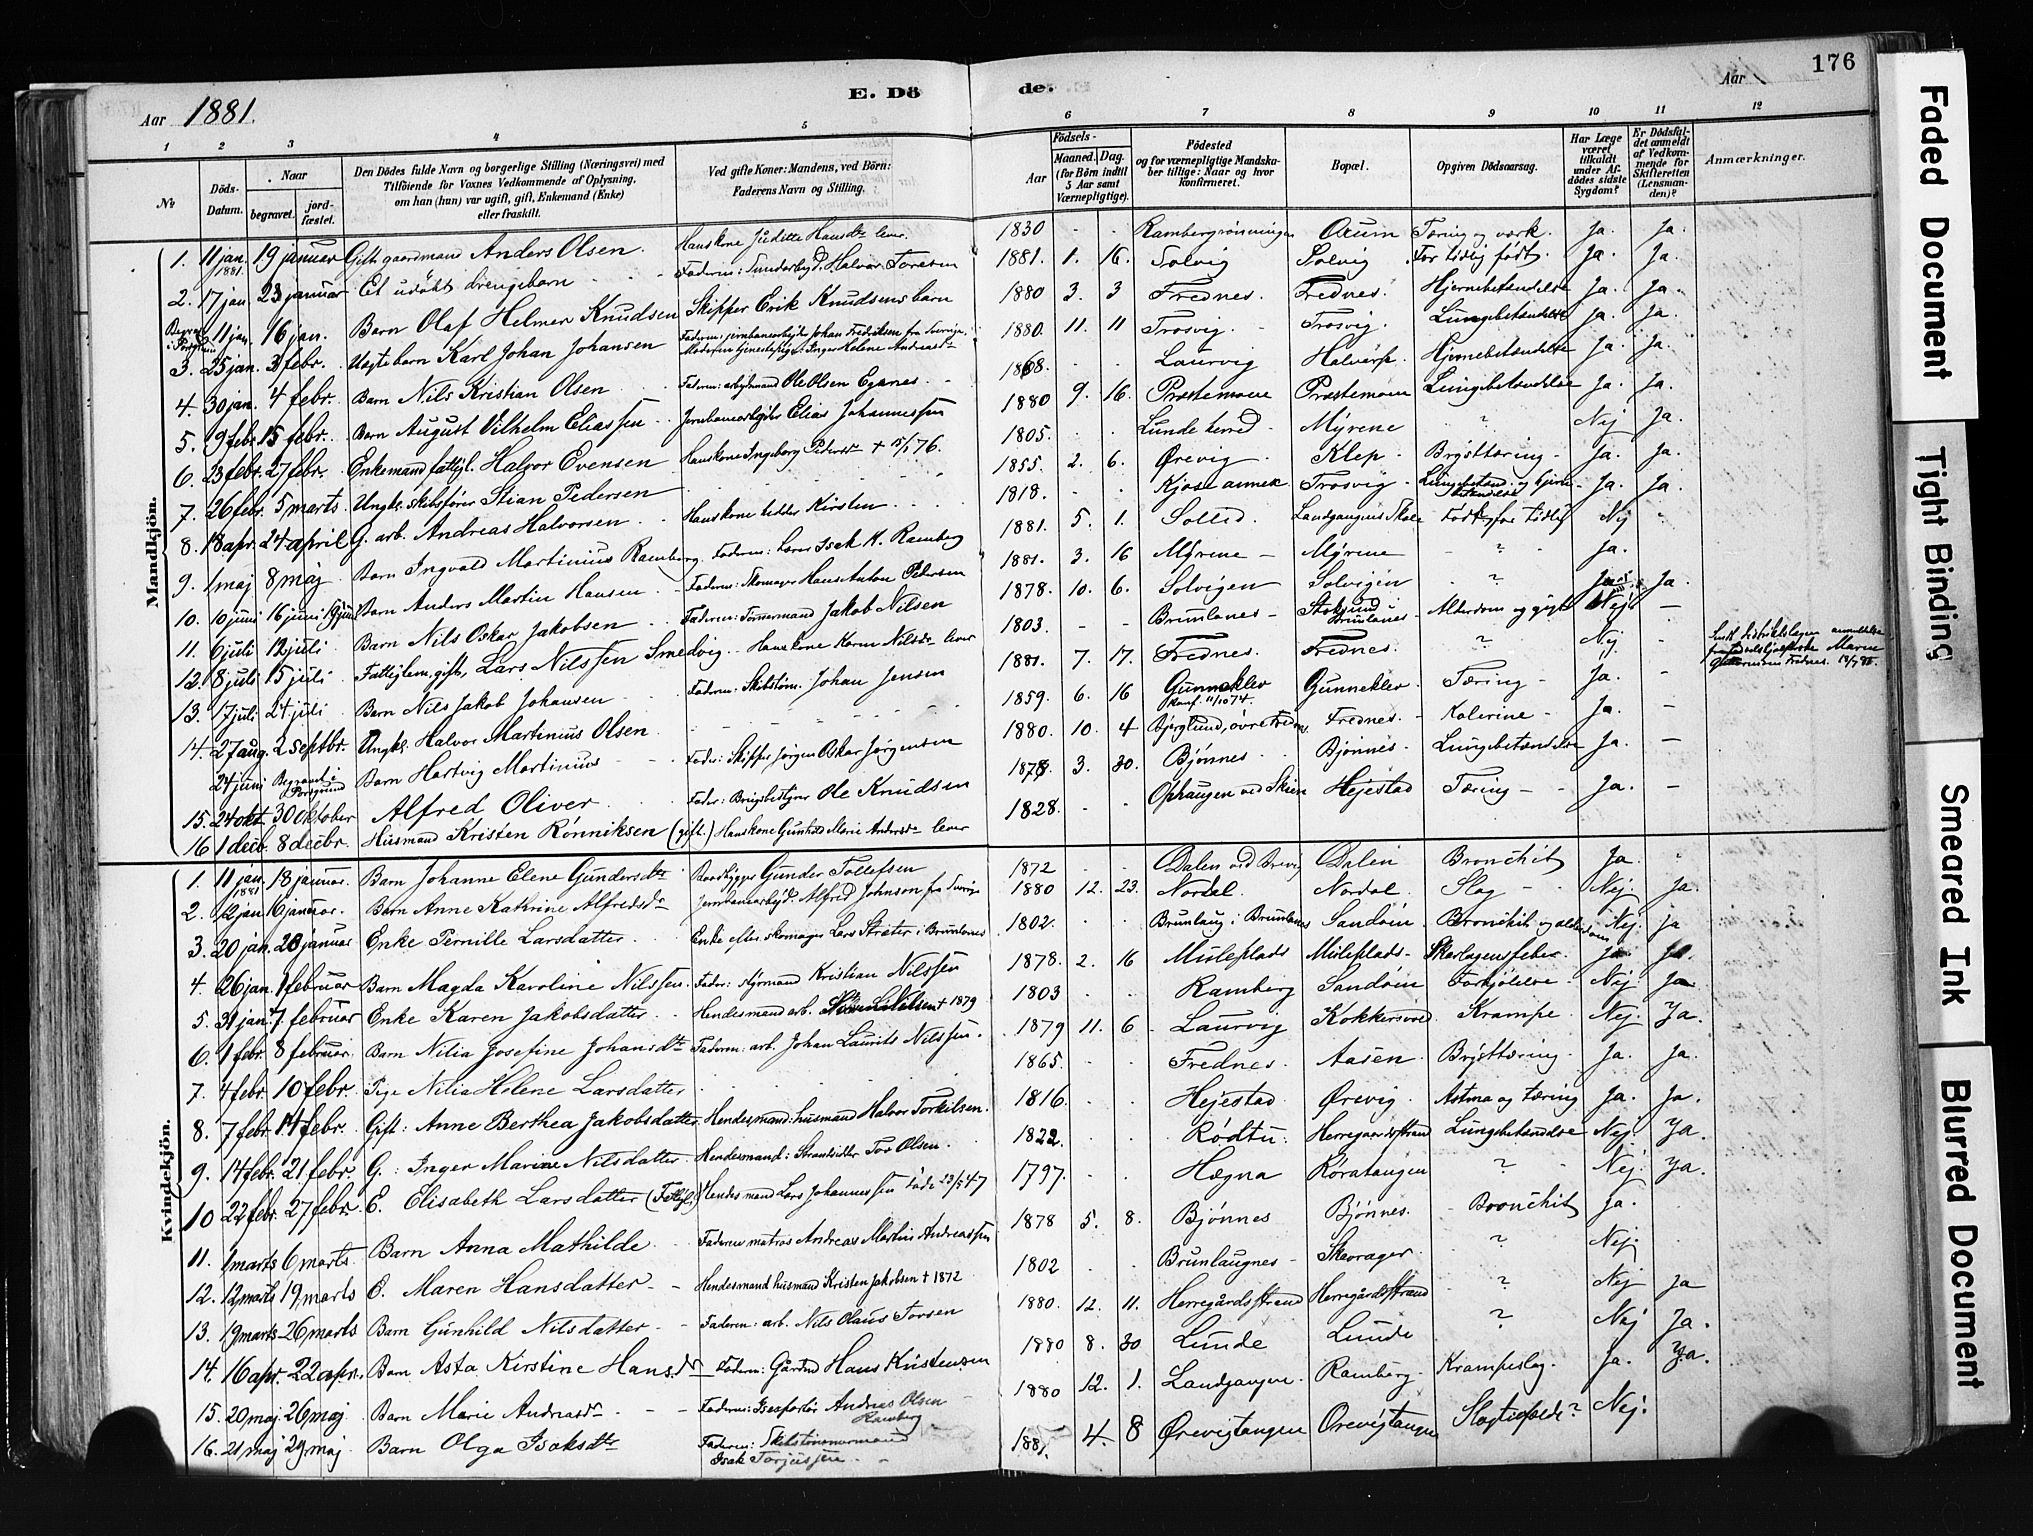 176
Aar 1881.
E. Dö de.
Aar
1 2 3 4 5 6 7 8 9 10 11 12
№
Döds-Datum.
Naar begravet. jordfæstet.
Den Dödes fulde Navn og borgerlige Stilling (Næringsvei) med Tilföiende for Voxnes Vedkommende af Oplysning, om han (hun) var ugift, gift, Enkemand (Enke) eller fraskilt.
Ved gifte Koner: Mandens, ved Börn: Faderens Navn og Stilling.
Födsels-
Aar
Maaned. Dag. (for Börn indtil 5 Aar samt Værnepligtige).
Födested og for værnepligtige Mandskaber tillige: Naar og hvor konfirmeret.
Bopæl.
Opgiven Dödsaarsag.
Har Læge været tilkaldt under Afdödes sidste Sygdom?
Er Dödsfaldet anmeldt af Vedkommende for Skifteretten (Lensmanden)?
Anmærkninger.
Mandkjön.
1. 11 jan. 1881. 19 januar Gift gaardmand Anders Olsen. Hans kone Juditte Hansdr lever. 1830 - - Rambergrönningen Ørum Tæring og værk. Ja. Ja.
2. 17 jan. 23 januar Et udöbt drengebarn Faderen: Halvor Toresen 1881. 1. 16. Solvig Solvig For tidlig født. Ja. Ja.
11 jan. 16 jan. Barn Olaf Helmer Knudsen Skipper Erik Knudsens barn 1880 3. 3 Frednes. Frednes. Hjernebetændelse Ja. Ja.
3. 25 jan. 3 febr. Uægte barn Karl Johan Johansen Faderen: jernbanearbejder Johan Fredriksen fra Sverige. Moderen: tjenestepige: Inger Helene Andreasdr 1880. 11. 11 Trosvig. Trosvig. Lungebetændelse Ja. Ja.
4. 30 jan. 4 febr. Barn Nils Kristian Olsen Faderen: arbejdsmand Ole Olsen Eganes 1868. Laurvig Halvarp. Hjernebetændelse Ja. Ja.
5. 9 febr. 15 febr. Barn August Vilhelm Eliassen Jernbanearbejder Elias Johannessen 1880 9. 16. Præstemoen Præstemoen Lungebetændelse Ja. Ja.
6. 23 febr. 27 febr. Enkemand fattigl. Halvor Evensen Hans kone Ingeborg Pedersdr + 1805. Lunde herred Myrene ? Nej Ja.
7. 26 febr. 5 marts. Ungk. skibsfører Stian Pedersen 1855. 2. 6. Ørevig Klep Brysttæring Ja. Ja.
8. 18 apr. 24 april G. arb. Andreas Halvorsen Hans kone hedder Kirsten 1818. Kjose annex Trosvig Lungebetænd. og hjernebetændelse Ja. Ja.
9. 1 maj 8 maj. Barn Ingvald Martinius Ramberg. Faderen: Lærer Isak K. Ramberg 1881. 5. 1. Landgangens Skole Født for tidlig Nej
10. 10 juni 16 juni 19 juni Barn Anders Martin Hansen Faderen: Skomager Hans Anton Pedersen 1881. 3. 16 Myrene Myrene ? Ja.
11. 6 juli 12 juli. Barn Nils Oskar Jakobsen Faderen: Tömmermand Jakob Nilsen 1878. 10. 6. Solvigen Solvigen ? Ja. Ja.
12. 8 juli 15 juli. Fattiglem, gift, Lars Nilssen Smedvig Hans kone Karen Nilsdr lever 1803. Brunlanes Stoksund i Brunlanes Alderdom og gigt Nej. —
13. 17 juli 24 juli Barn Nils Jakob Johansen Faderen: Skibstöm. Johan Jensen 1881. 7. 17. Frednes Frednes. ? Nej —
14. 27 aug. 2 septbr. Ungk. Halvor Martinius Olsen 1859. 6. 16 Gunneklev Konf. 11/10 74. Gunneklev Tæring Ja. —
24 juni Begravet i Porsgrund Barn Hartvig Martinius Fader: Skipper Jørgen Oskar Jørgensen 1880. 10. 4 Bjerglund, övre Frednes Frednes. Kolerine Ja. —
15. 24 okt. 30 oktober Alfred Oliver Fader: Brugsbestyrer Ole Knudsen 1878. 3. 30. Bjønnes Bjønnes. Lungebetændelse Ja. —
16 1 decb. 8 decbr. Husmand Kristen Rønniksen (gift.) Hans kone Gunhild Marie Andersdr lever 1828. Ophaugen ved Skien Hejestad Tæring Ja. —
Kvindekjön.
1. 11 jan. 1881 18 januar. Barn Johanne Elene Gundersdr Gunder Tollefsen 1872 Dalen ved Brevig Dalen Bronchit Ja.
2. 12 jan. 16 januar. Barn Anne Kathrine Alfredsdr Jernbanearbejd. Alfred Johnson fra Sverige 1880 12. 23. Nordal. Nordal. Slag Nej. Ja.
3. 20 jan. 28 januar Enke Pernille Larsdatter. Enke efter skomager Lars Strøter i Brunlanes 1802. Brunlaug i Brunlanes Sandøen Bronchit og alderdom Nej. Ja
4. 26 jan. 1 februar Barn Magda Karoline Nilssen. Fader: styrmand Kristian Nilssen 1878. 2. 16 Muleplads Muleplads Skarlagensfeber Ja. Ja.
5. 31 jan. 7 februar Enke Karen Jakobsdatter. Hendes mand arb. + 1879 1803 Ramberg Sandøen Forkjølelse Nej Ja
6. 1 febr. 8 februar. Barn Nilia Josefine Johansdr Faderen: arb. Johan Laurits Nilssen. 1879 11. 6 Laurvig Kokkersvold Krampe. Nej. Ja.
7. 4 febr. 10 febr. Pige Nilia Helene Larsdatter 1865. Frednes. Aasen Brysttæring Ja. Ja.
8. 7 febr. 14 febr. Gift: Anne Berthea Jakobsdatter Hendes mand: husmand Halvor Torkilsen. 1816. Hejestad Ørevig. Astma og tæring Ja. Ja.
9. 14 febr. 21 febr. G: Inger Marine Nilsdatter. Hendes mand: Strandsidder Tor Olsen. 1822. Rødtu: Herregaardsstrand Lungebetændelse Nej. Ja.
10 22 febr. 27 febr. E. Elisabeth Larsdatter (Fattigl.) Hendes mand Lars Johannessen døde 23/5 47 1797. Hægna Røratangen ? Nej. Ja.
11. 1 marts 6 marts. Barn Anna Mathilde Faderen matros Andreas Martin Andreassen 1878 5. 8. Bjønnes Bjønnes. Bronchit Ja.
12. 12 marts 19 marts E. Maren Hansdatter Hendes mand husmand Kristen Jakobsen + 1872 1802 Brunlaugnes Skavrager ? Nej.
13. 19 marts 26 marts Barn Gunhild Nilsdatter Faderen: arb. Nils Olaus Torsen 1880. 12. 11. Herregårdsstrand Herregårdsstrand ? Nej Ja
14. 16 apr. 22 apr. Barn Asta Kirstine Hansdr Faderen: Gårdmd Hans Kristensen 1880 8. 30 Lunde Lunde ? Nej Ja.
15. 20 maj. 26 maj Barn Marie Andreasdr Faderen: Andreas Olsen Ramberg 1880 12. 1. Landgangen. Ramberg. Krampeslag. Ja. Ja.
16. 21 maj 29 maj Barn Olga Isaksdr Faderen: Skibstömmermand Isak Torjussen 1881. 4. 8 Ørevigtangen Orevigtangen Nej.
Faded Document
Tight Binding
Smeared Ink
Blurred Document